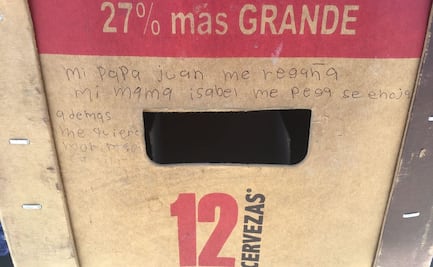 27% más GRANDE
mi papa juan me regaña
mi mama isabel me pega se enoja
ademas
me quiero
12 CERVEZAS